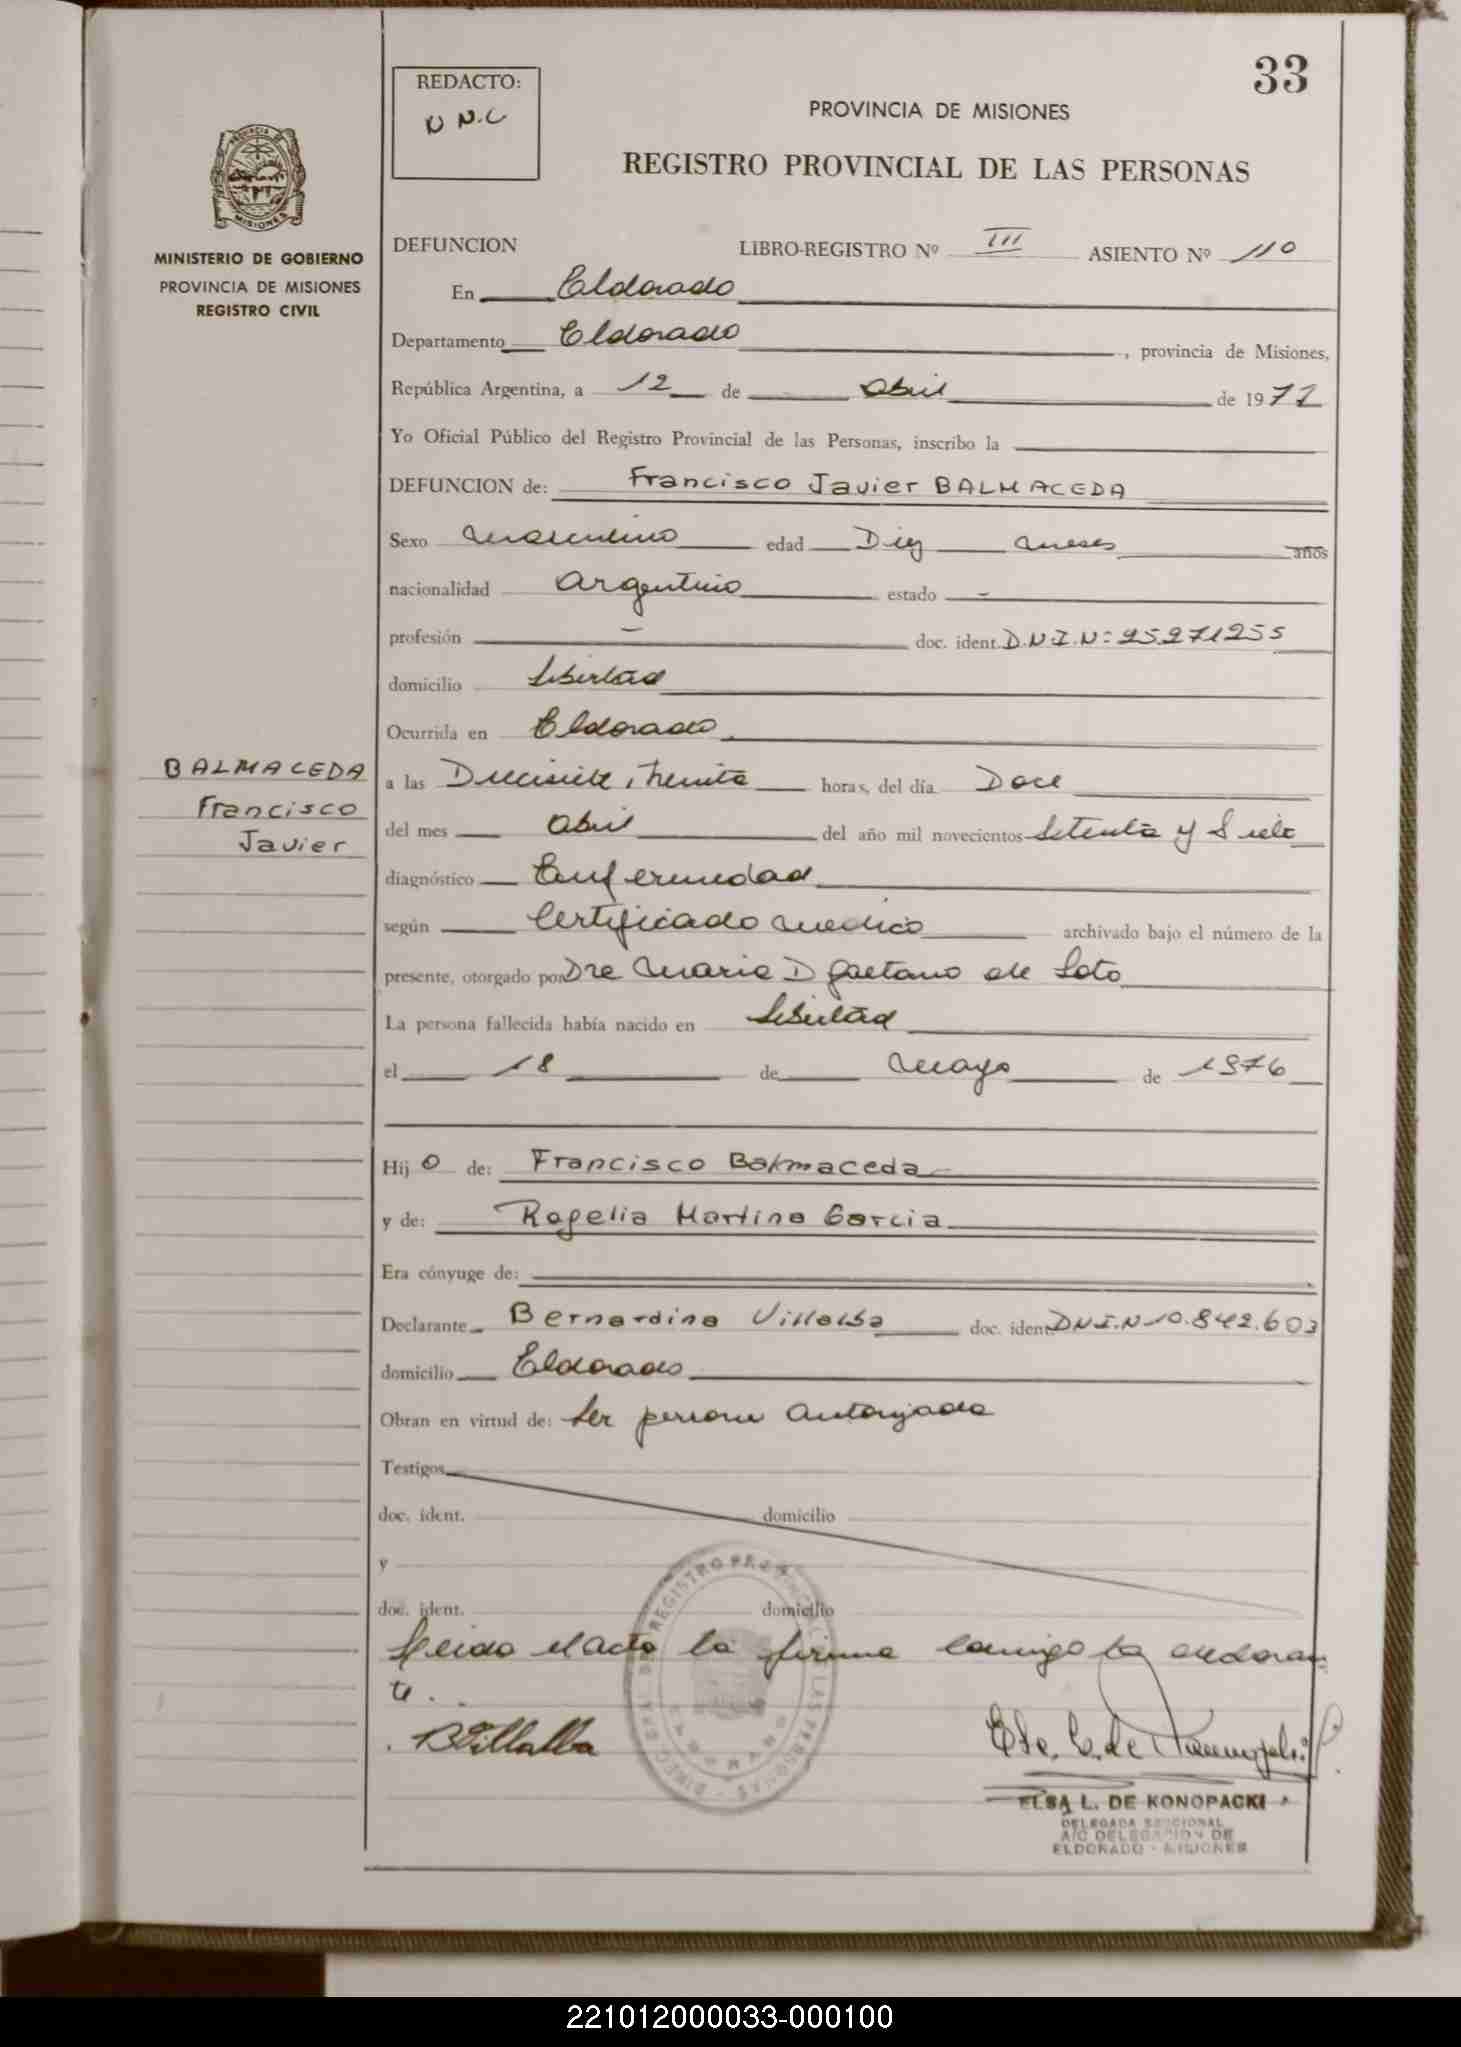 33
REDACTO:
N N.C
PROVINCIA DE MISIONES
REGISTRO PROVINCIAL DE LAS PERSONAS
MINISTERIO DE GOBIERNO
PROVINCIA DE MISIONES
REGISTRO CIVIL
DEFUNCION LIBRO-REGISTRO Nº III ASIENTO Nº 110
En Eldorado
Departamento Eldorado, provincia de Misiones,
República Argentina, a 12 de abril de 1977
Yo Oficial Público del Registro Provincial de las Personas, inscribo la
DEFUNCION de: Francisco Javier BALMACEDA
Sexo Masculino edad Diez meses años
nacionalidad argentino estado -
profesión - doc. ident. D.N.I.Nº 25.271255
domicilio Libertad
Ocurrida en Eldorado
BALMACEDA
Francisco
Javier
a las Diecisiete, treinta horas, del día Doce
del mes abril del año mil novecientos Setenta y Siete
diagnóstico Enfermedad
según Certificado medico archivado bajo el número de la
presente, otorgado por Dra Maria D Gaetano de Soto
La persona fallecida había nacido en Libertad
el 18 de Mayo de 1976
Hij o de: Francisco Balmaceda
y de: Rogelia Martina Garcia
Era cónyuge de:
Declarante Bernardina Villalba doc. ident. D.N.I.N 10.842.603
domicilio Eldorado
Obran en virtud de: Ser persona autorizada
Testigos
doc. ident. domicilio
y
doc. ident. domicilio
Leida el acta la firma conmigo la declaran-
te.
BVillalba
ELSA L. DE KONOPACKI
DELEGADA SECCIONAL
A/C DELEGACION DE
ELDORADO - MISIONES
221012000033-000100